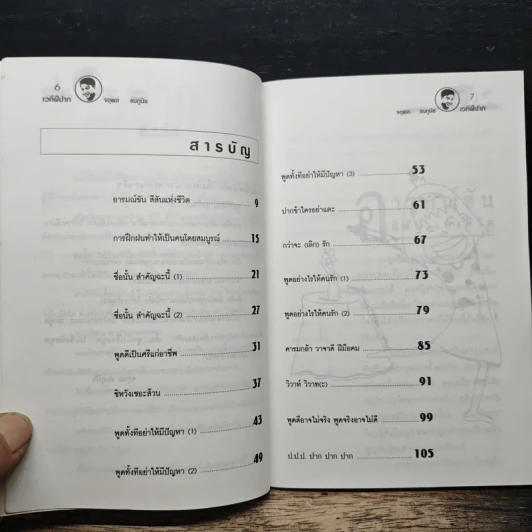 6
เวทีฝีปาก
จตุพล ชมภูนิช
สารบัญ
อารมณ์ขัน สีสันแห่งชีวิต 9
การฝึกฝนทำให้เป็นคนโดยสมบูรณ์ 15
ชื่อนั้น สำคัญฉะนี้ (1) 21
ชื่อนั้น สำคัญฉะนี้ (2) 27
พูดดีเป็นศรีแก่อาชีพ 31
ชิหวังเซอะล้วน 37
พูดทั้งทีอย่าให้มีปัญหา (1) 43
พูดทั้งทีอย่าให้มีปัญหา (2) 49
7
จตุพล ชมภูนิช
เวทีฝีปาก
พูดทั้งทีอย่าให้มีปัญหา (3) 53
ปากข้าใครอย่าแตะ 61
กว่าจะ (เลิก) รัก 67
พูดอย่างไรให้คนรัก (1) 73
พูดอย่างไรให้คนรัก (2) 79
คารมกล้า วาจาดี ฝีมือคม 85
วิวาห์ วิวาท(ะ) 91
พูดดีอาจไม่จริง พูดจริงอาจไม่ดี 99
ป.ป.ป. ปาก ปาก ปาก 105